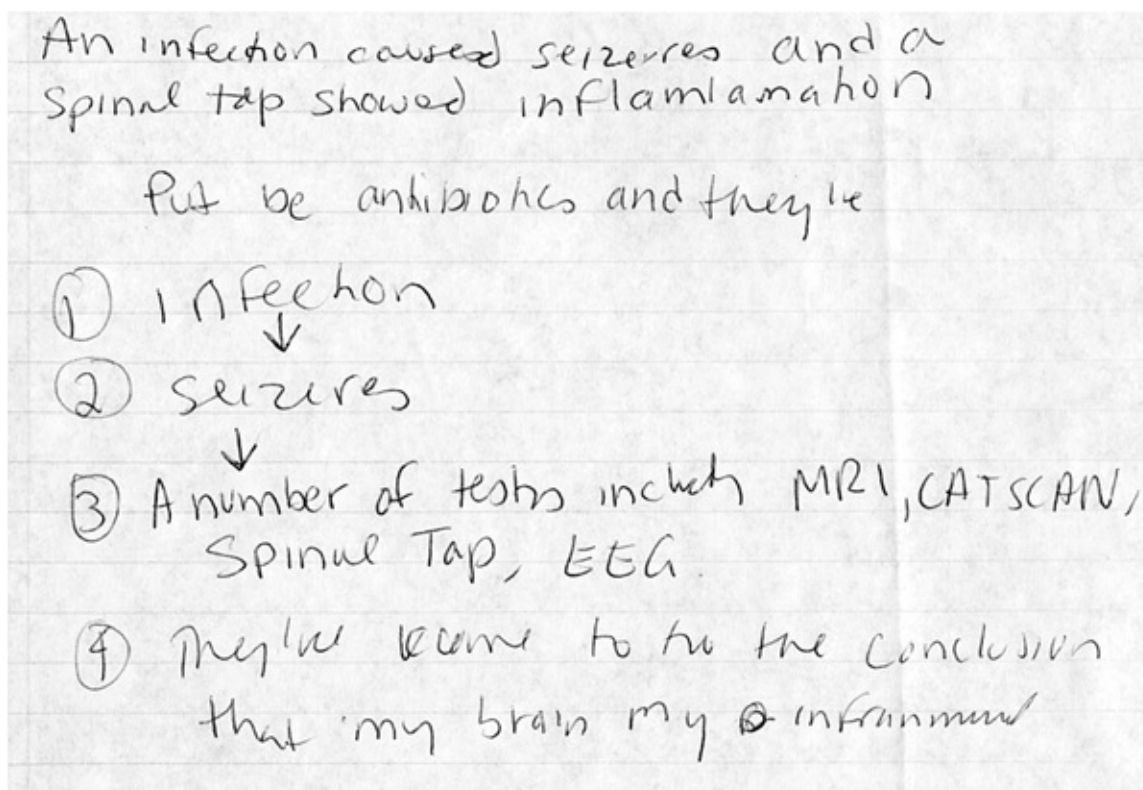 An infection caused seizerres and a
spinal tap showed inflamlamation
Put be antibiotics and they've
1 infection
↓
2 seizeres
↓
3 A number of tests MRI, CATSCAN,
Spinal Tap, EEG.
4 They've to the conclusion
that my brain my